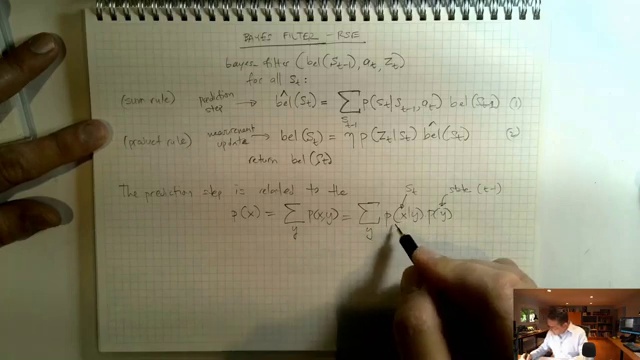 BAYES FILTER - RSE
bayes filter (bel(S_{t-1}), a_t, Z_t)
for all S_t:
(sum rule) prediction step → b̂el(S_t) = ∑_{S_{t-1}} p(S_t|S_{t-1}, a_t) bel(S_{t-1}) (1)
(product rule) measurement update → bel(S_t) = η p(Z_t|S_t) b̂el(S_t) (2)
return bel(S_t)
The prediction step is related to the
S_t state (t-1)
p(x) = ∑_y p(x,y) = ∑_y p(x|y) p(y)